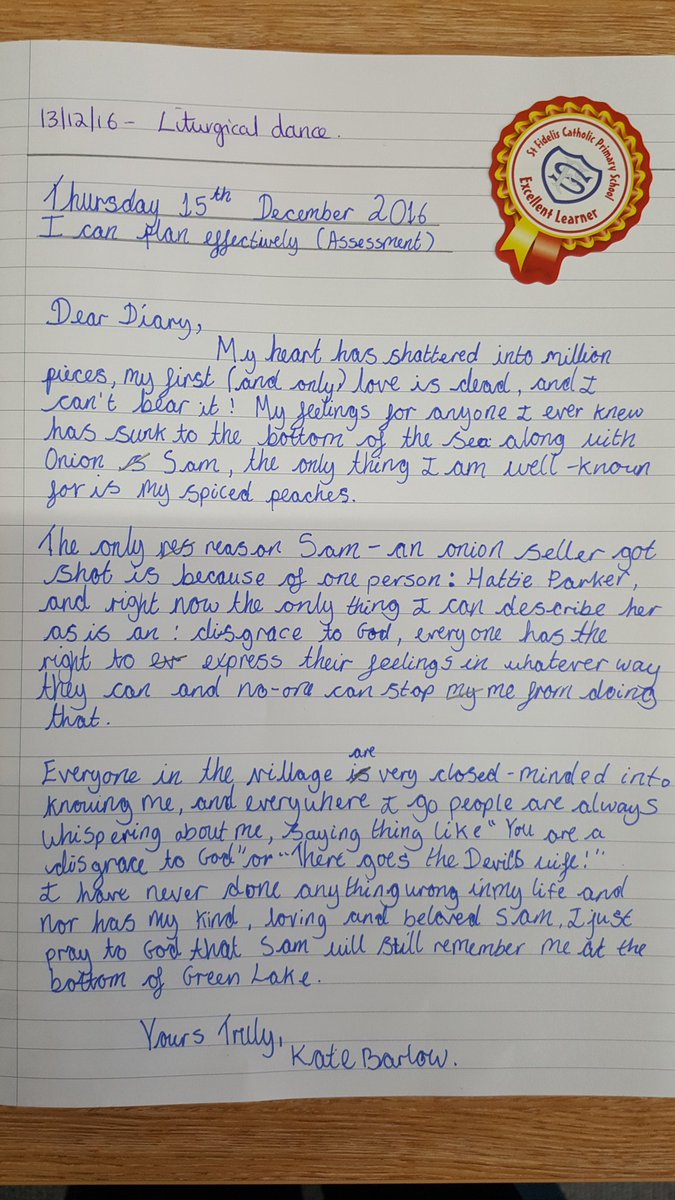 13/12/16 - Liturgical dance.
St Fidelis Catholic Primary School
Excellent Learner
Thursday 15th December 2016
I can plan effectively (Assessment)
Dear Diary,
My heart has shattered into million
pieces, my first (and only) love is dead, and I
can't bear it! My feelings for anyone I ever knew
has sunk to the bottom of the sea along with
Onion Sam, the only thing I am well-known
for is my spiced peaches.
The only res reason Sam - an onion seller got
shot is because of one person: Hattie Parker,
and right now the only thing I can describe her
as is an : disgrace to God, everyone has the
right to ex express their feelings in whatever way
they can and no-one can stop my me from doing
that.
Everyone in the village is are very closed-minded into
knowing me, and everywhere I go people are always
whispering about me, saying thing like "You are a
disgrace to God" or "There goes the Devil's wife!"
I have never done anything wrong in my life and
nor has my kind, loving and beloved Sam, I just
pray to God that Sam will still remember me at the
bottom of Green Lake.
Yours Truly,
Kate Barlow.